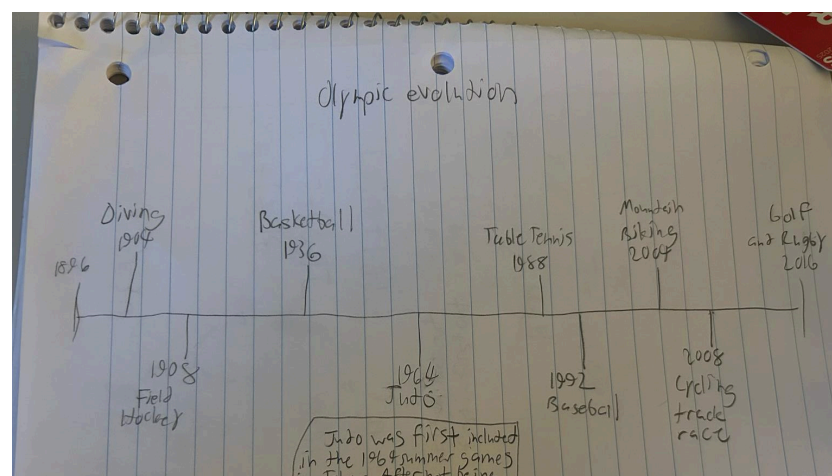 Olympic evolution
1896
Diving
1904
Basketball
1936
Table Tennis
1988
Mountain
Biking
2004
Golf
and Rugby
2016
1908
Field
Hockey
1964
Judo
1992
Baseball
2008
Cycling
track
race
Judo was first included
in the 1964 summer games